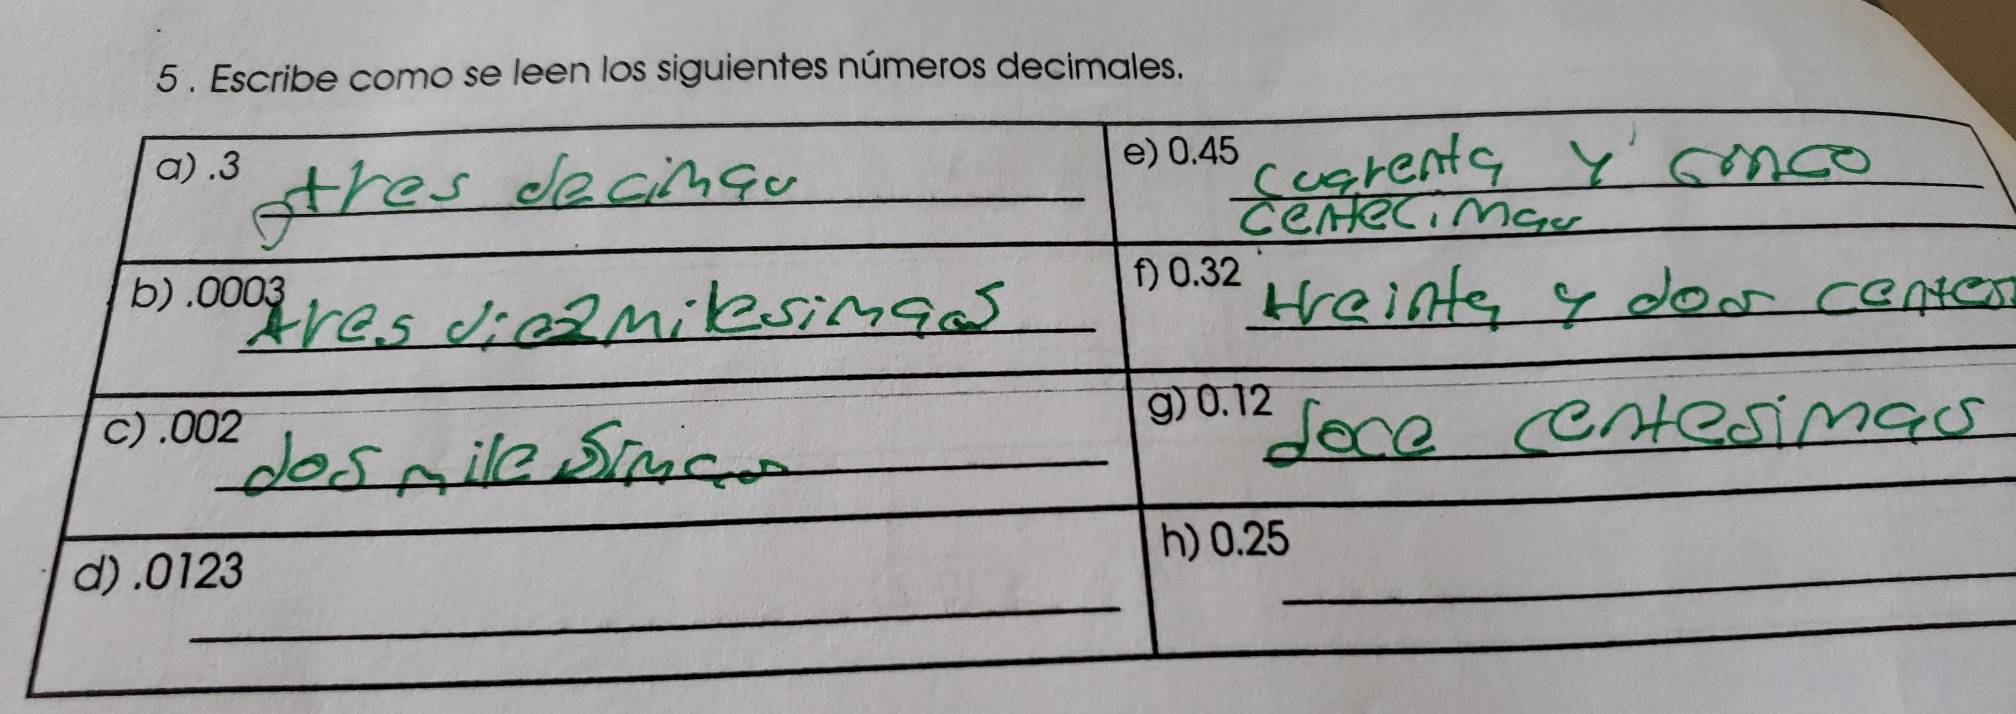 5. Escribe como se leen los siguientes números decimales.
a) .3 tres decimas
b) .0003 tres diezmilesimas
c) .002 dos milesimas
d) .0123
e) 0.45 cuarenta y cinco
centecimas
f) 0.32 treinta y dos centes
g) 0.12 doce centesimas
h) 0.25